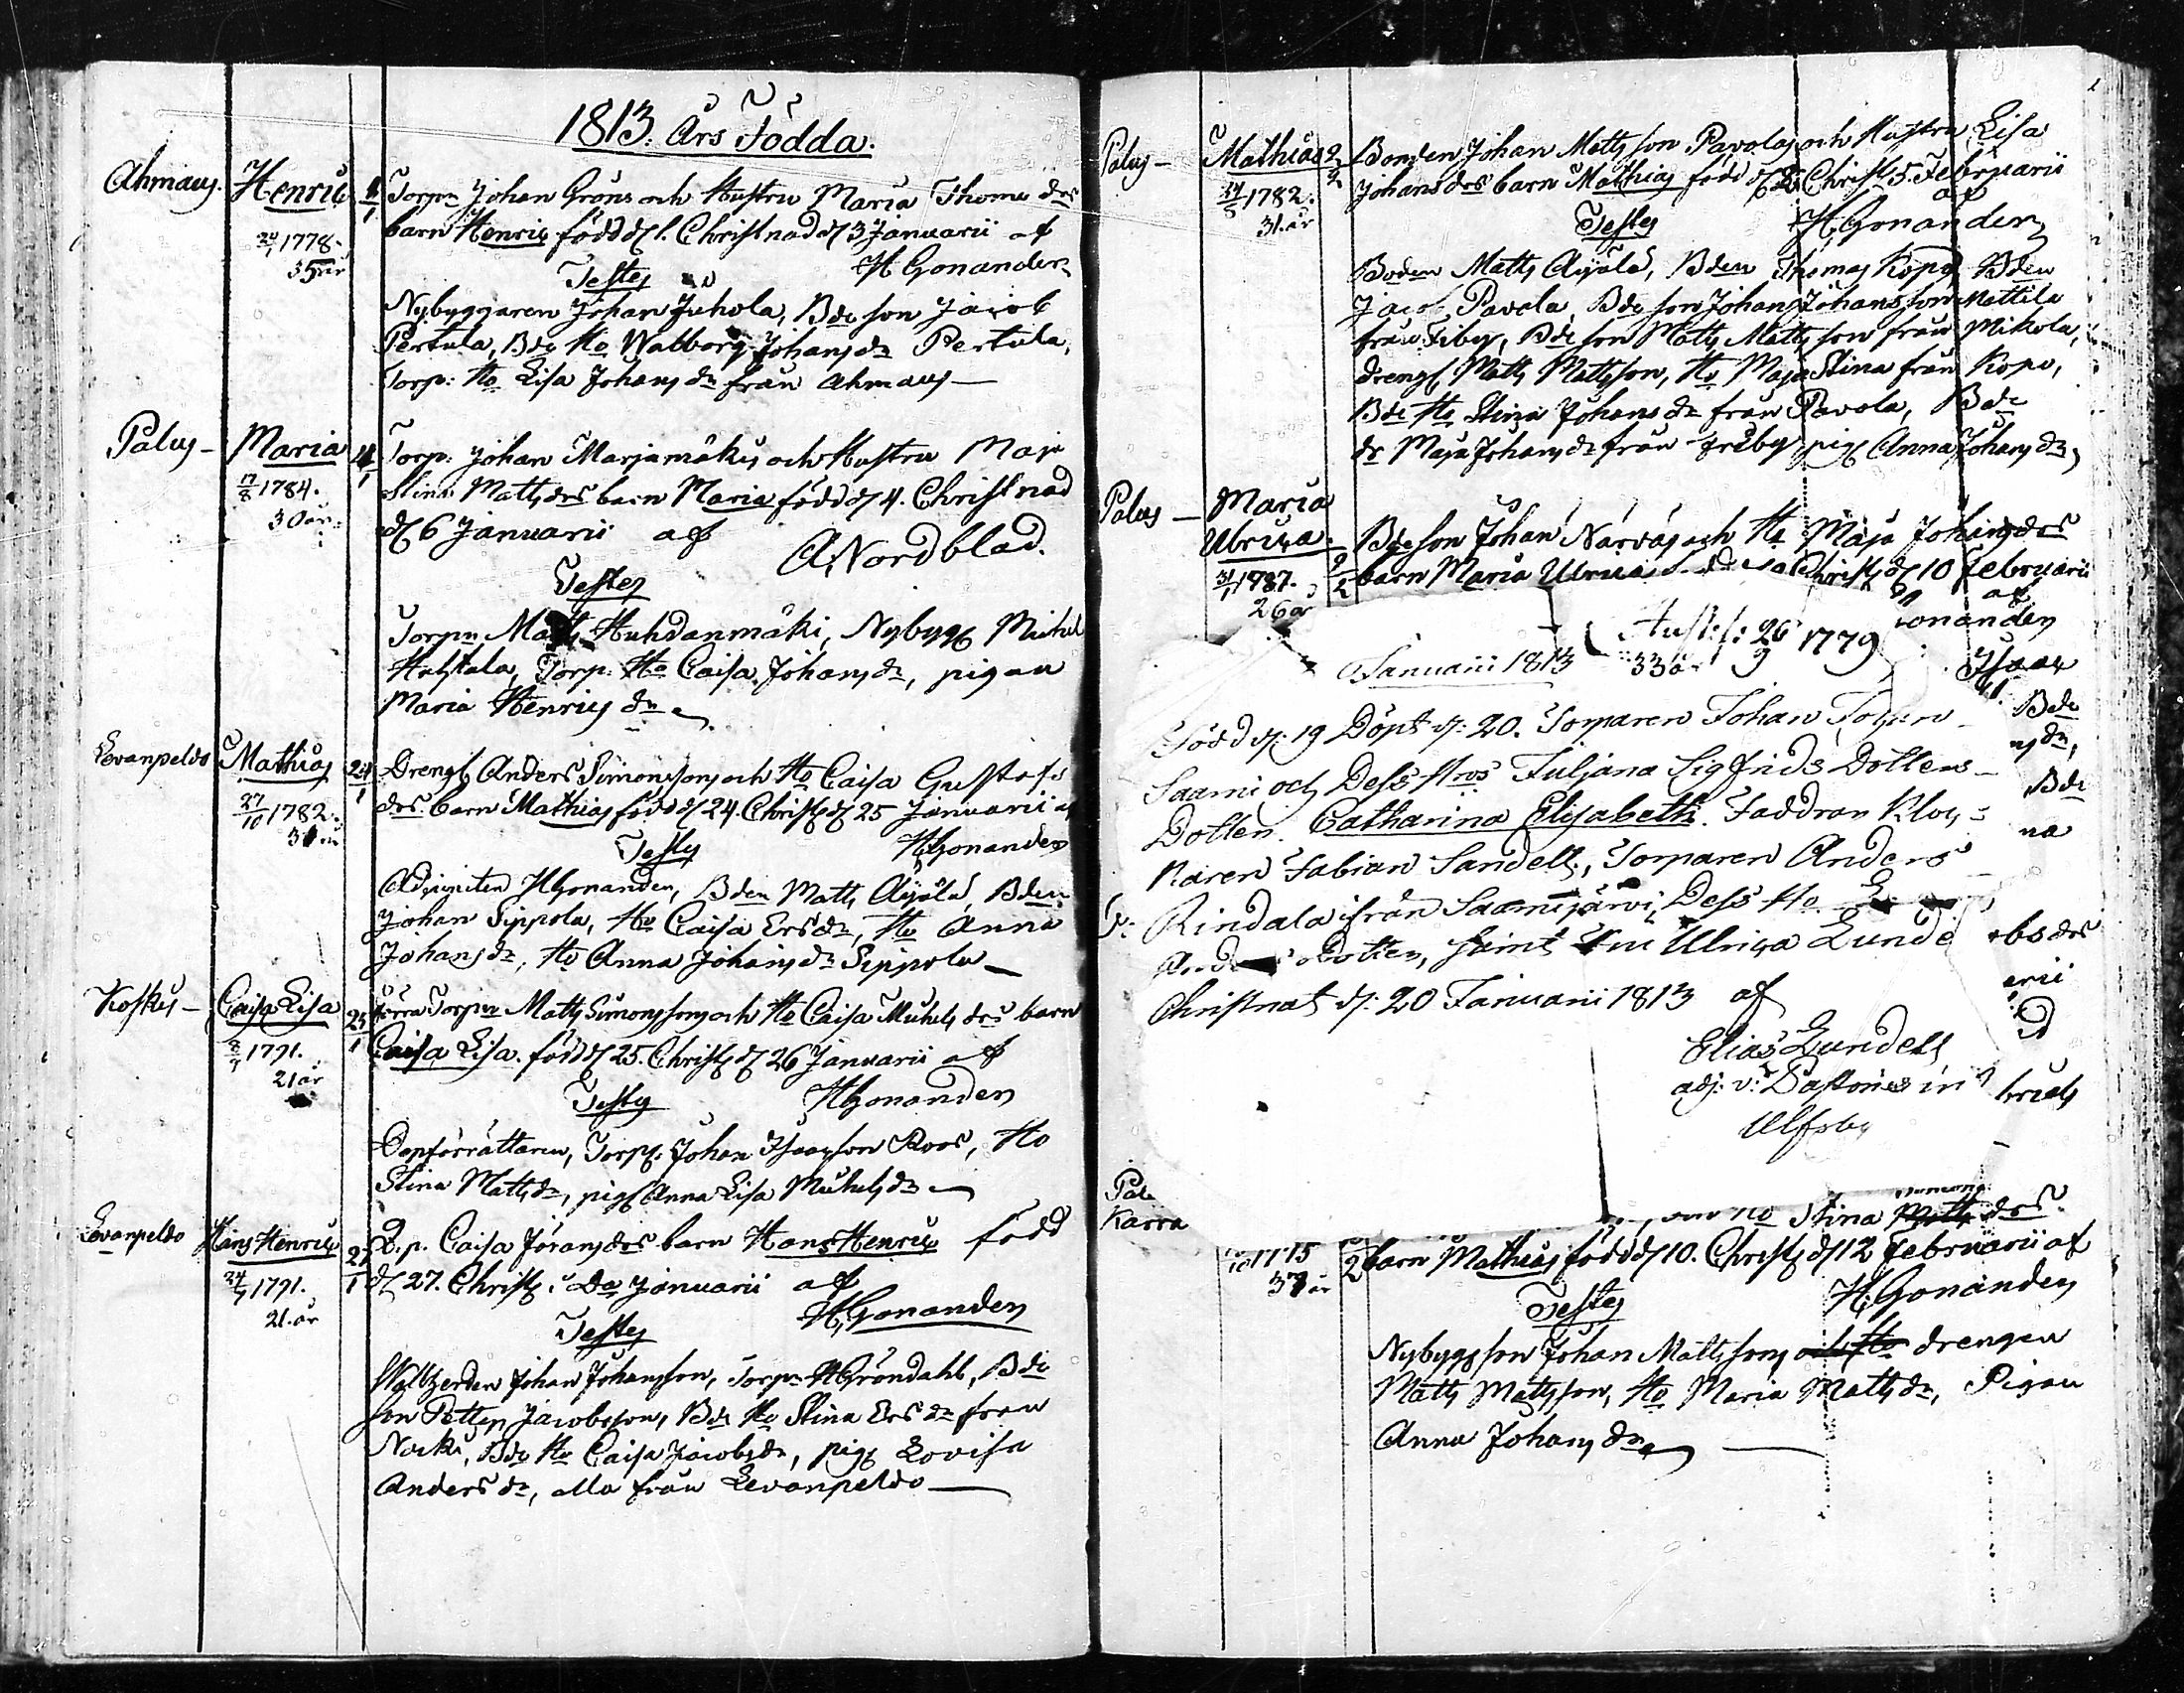 1813. Års Födda.
Ahmaus. Henric 1/1 Torpn Johan Gröns och Hustru Maria Thomæ drs
24/1 1778. barn Henric född d. 1. Christnad d. 3 Januarii af
35 år H Gonander
Testes
Nybyggaren Johan Juhola, Bde son Jacob
Pertula, Bde Ho Walborg Johans dr Pertula,
Torp: Ho Lisa Johans dr från Ahmaus —
Palus — Maria 4/1 Torp: Johan Marjamäkis och Hustru Maja
17/8 1784. Stina Matts drs barn Maria född d. 4. Christnad
30 år. d. 6 Januarii af
A Nordblad.
Testes
Torpn Matts Huhdanmäki, Nybygg Michel
Torp: Ho Caisa Johans dr, pigan
Maria Henrics dr
Levanpeldo Mathias 24/1 Dreng Anders Simonssons och Ho Caisa Gustafs
27/10 1782. drs barn Mathias född d. 24. Christ d. 25 Januarii af
31 år Testes H Gonander
Adjuncten H Gonander, Bden Matts Äijälä, Bden
Johan Sippola, Ho Caisa Ersdr, Ho Anna
Johans dr, Ho Anna Johans dr Sippola —
Koskis — Caisa Lisa 25/1 förra Torpn Matts Simonssons och Ho Caisa Michels drs barn
1791. Caisa Lisa. född d. 25. Christ d. 26 Januarii af
21 år Testes H Gonander
Dopförrättaren, Torp: Johan Isacsson Roos, Ho
Stina Matts dr, pig Anna Lisa Michels dr —
Levanpeldo Hans Henric 27/1 Q.p. Caisa Jörans drs barn Hans Henric född
1791. d. 27. Christ. do Januarii af
21. år H. Gonander
Testes
Johan Johansson, Torpn H Gröndahl, Bde
son Petter Jacobsson, Bde Ho Stina Ers dr från
Bde Ho Caisa Jacobs dr, pig Lovisa
Anders dr, alla från Levanpeldo —
Palus — Mathias 2/2 Bonden Johan Mattsson Pavolas och Hustru Lisa
1782. Johans drs barn Mathias född d. 2 Christ 5. Februarii
31. år af
Testes H. Gonander
Boden Matts Äijälä, Bden Thomas Kopo, Bden
Jacob Pavola, Bde son Johan Johansson Mattila
från Friby, Bde son Matts Mattsson från Mikola,
dreng Matts Mattsson, Ho Maja Stina från Kopo,
Bde Ho Stina Johans dr från Pavola, Bde
dr Maja Johans dr från Friby pig Anna Johans dr,
Palus — Maria
Ulrica. 9/2 Bde son Johan Närväs och Ho Maja Johans drs
31/1 1787. barn Maria Ulrica Christ d. 10 Februarii
26 år af
onander
Januarii 1813 Hust: f: 26/9 1779
33 år
Isaac
Född d: 19 Döpt d: 20. Torparen Johan
Saami och Dess Hros Juliana Sigfrids Dotters
Dotter. Catharina Elisabeth. Faddrar Kloc=
karen Fabian Sandell, Torparen Anders
Rindala ifrån Saamijärvi, Dess Ho
Dotter, samt Ulrica Lunde
Christnat d: 20 Januarii 1813 af
Elias Lundell
adj: v: Pastoris in
Ulfsby
Bde
Bde
na
bs drs
Karra
Stina drs
1775 2 barn Mathias född d. 10. Christ d. 12 Februarii af
37 år Testes H. Gonander
Nybyggs son Johan Mattssons och Ho drengen
Matts Mattsson, Ho Maria Matts dr, Pigan
Anna Johans dr —